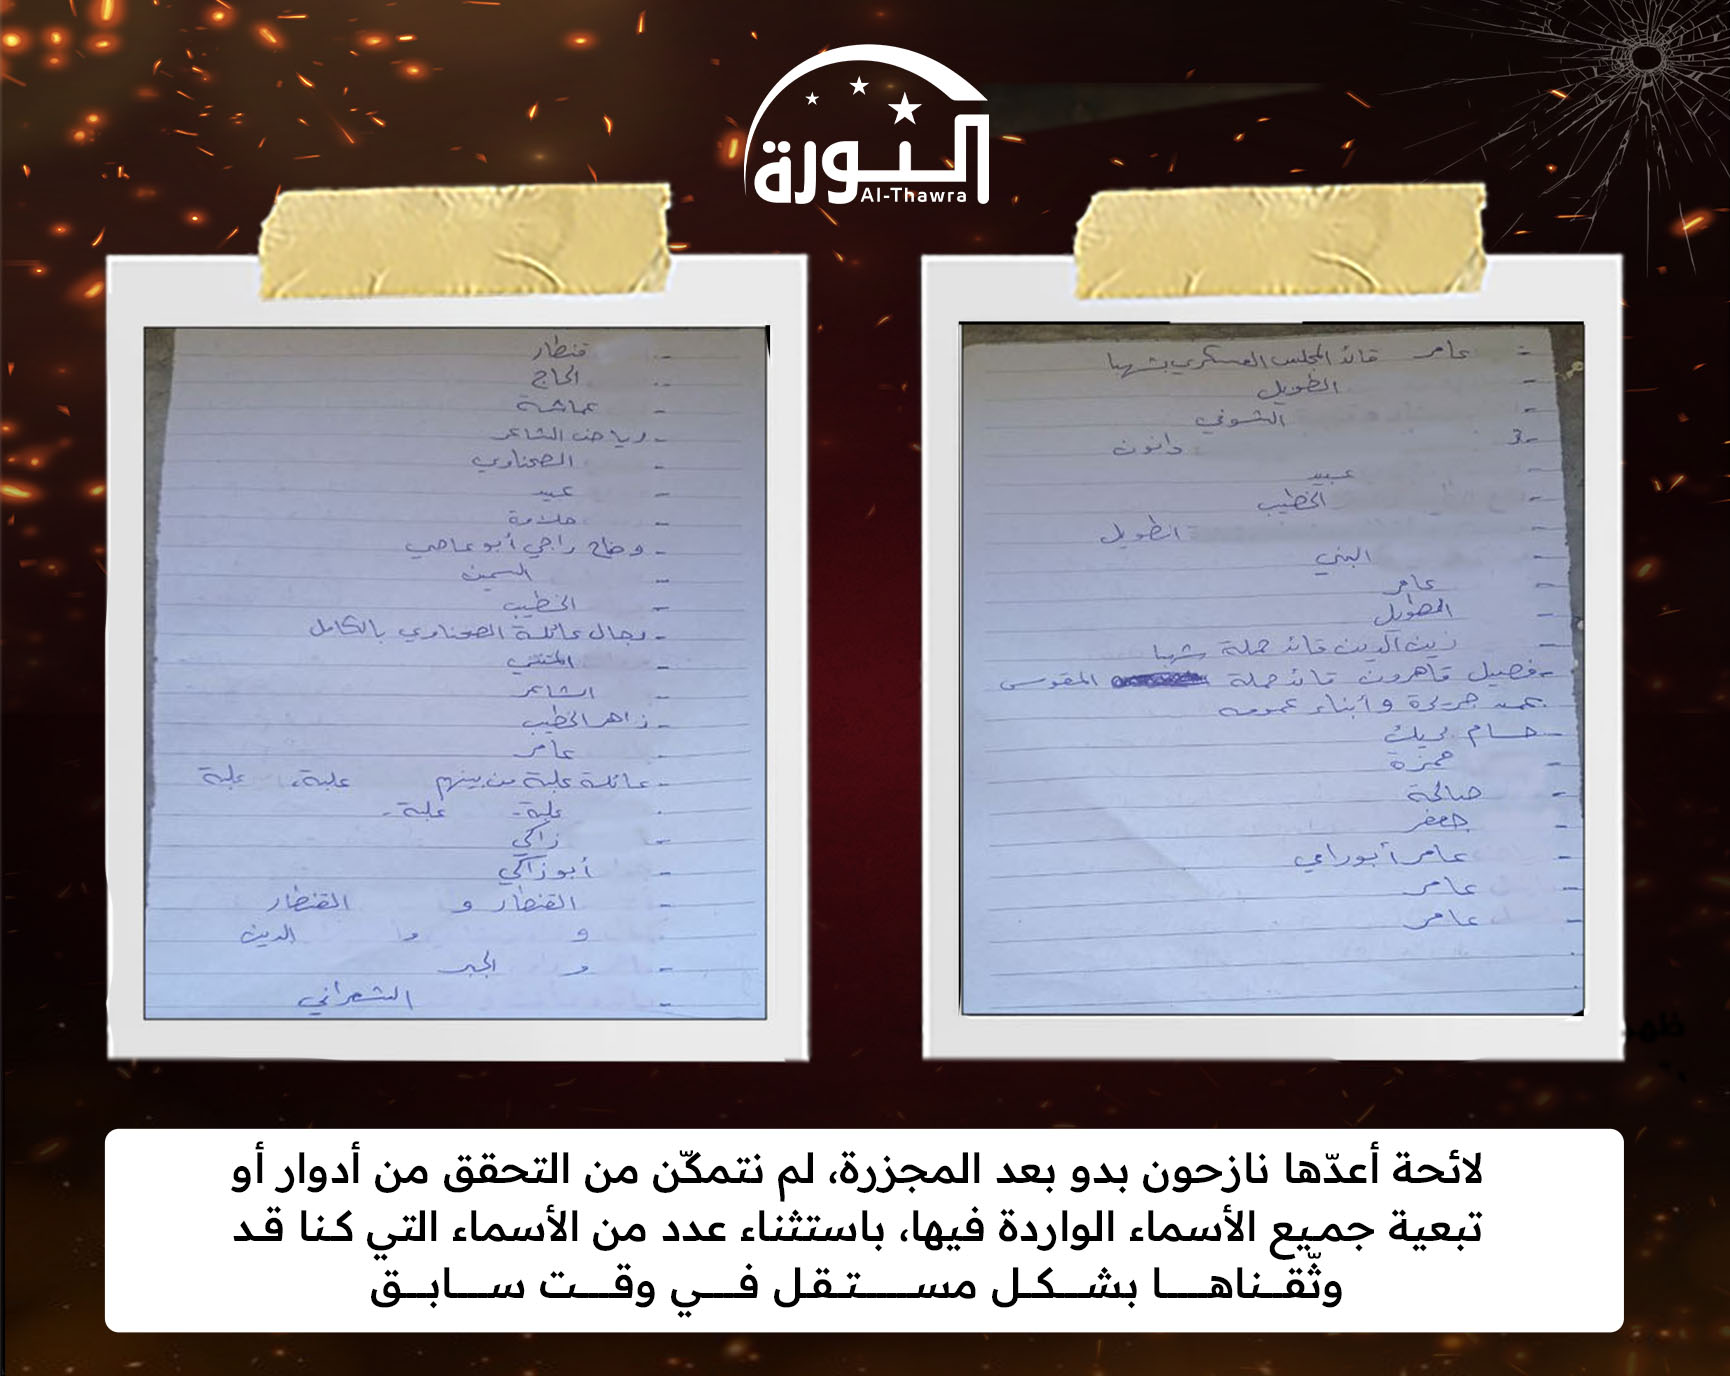 الثورة
Al-Thawra
- عامر قائد المجلس العسكري بشهبا
- الطويل
- الشوفي
3- ذانون
- عبيد
- الخطيب
- الطويل
- البني
- عامر
- الطويل
- زين الدين قائد حملة شهبا
- فصيل قاهرون قائد حملة المقوسى
وأبناء عمومه
- حسام
- حمزة
- صالحة
- جعفر
- عامر أبو رامي
- عامر
- عامر
- قنطار
- الحاج
- عماشة
- رياض الشاعر
- الصحناوي
- عبيد
- حلاوة
- وضاح راجي أبو عاصي
- السمين
- الخطيب
- رجال عائلة الصحناوي بالكامل
- المتني
- الشاعر
- زاهر الخطيب
- عامر
- عائلة علبة من بينهم علبة، علبة
علبة - علبة -
- زاكي
- أبو زاكي
- القنطار و القنطار
و وا الدين
- و الجبر
- الشعراني
لائحة أعدّها نازحون بدو بعد المجزرة، لم نتمكّن من التحقق من أدوار أو
تبعية جميع الأسماء الواردة فيها، باستثناء عدد من الأسماء التي كنا قد
وثّقناها بشكل مستقل في وقت سابق